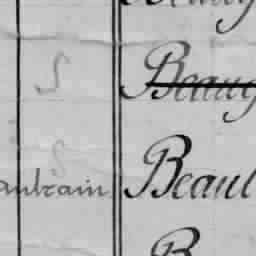 S
Beaug
S
aubrain Beaul